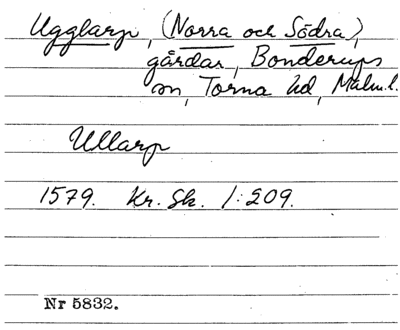 Ugglarp, (Norra och Södra),
gårdar, Bonderups
sn, Torna hd, Malm.l.
Ullarp
1579. Kr. Sk. 1:209.
Nr 5832.